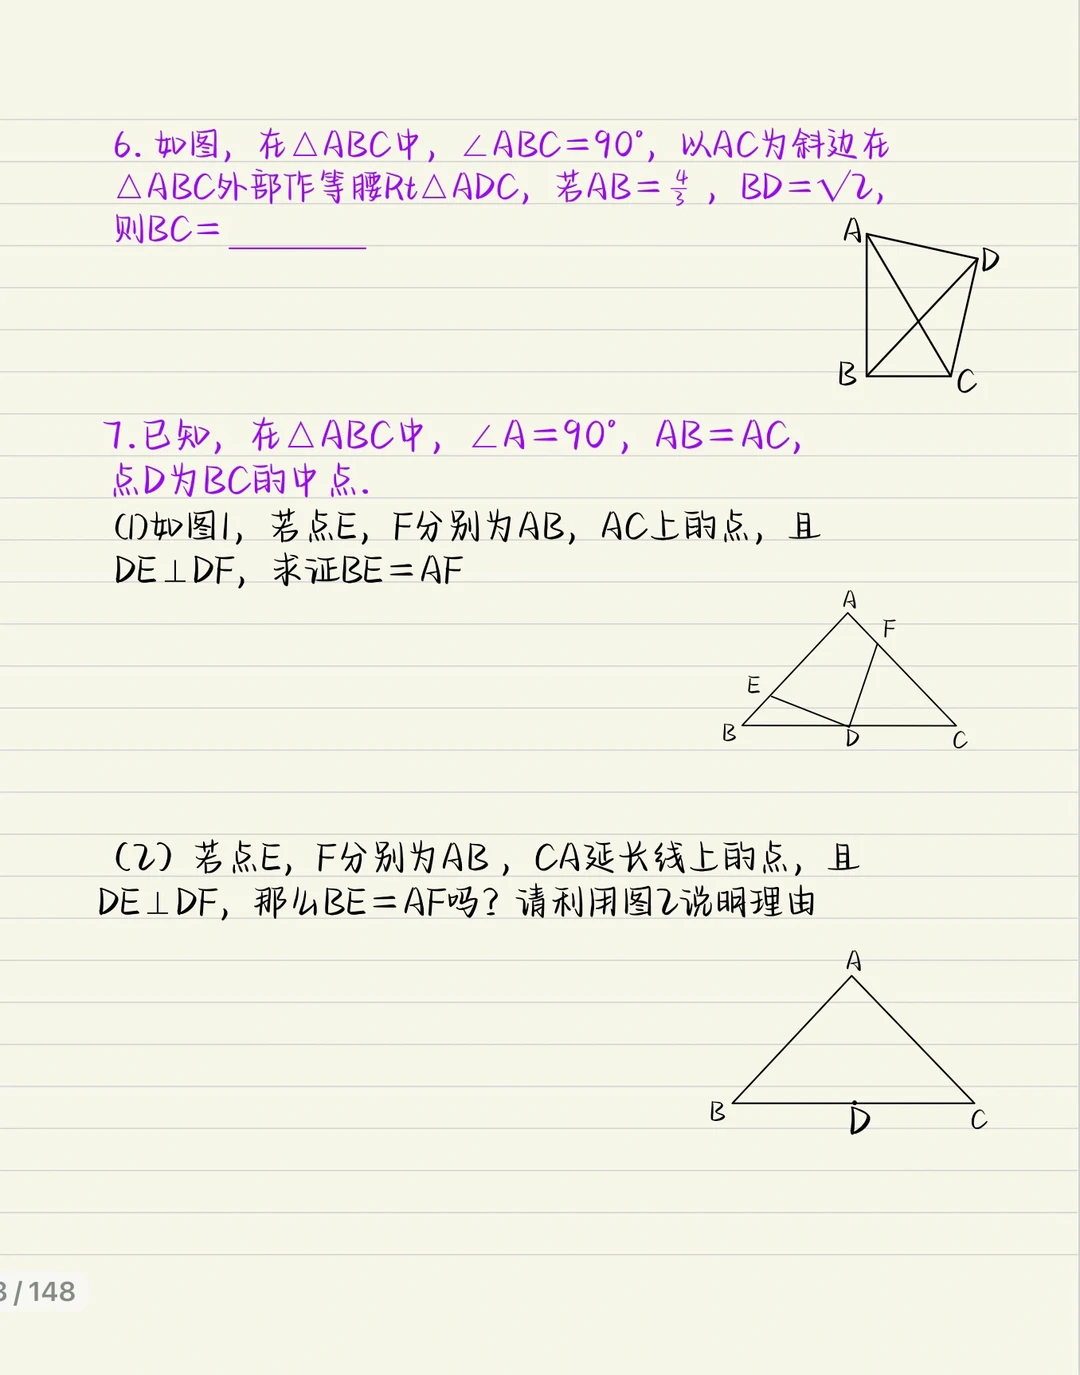 6. 如图，在△ABC中，∠ABC=90°，以AC为斜边在
△ABC外部作等腰Rt△ADC，若AB=4/3，BD=√2，
则BC=______
A
D
B
C
7.已知，在△ABC中，∠A=90°，AB=AC，
点D为BC的中点.
(1)如图1，若点E，F分别为AB，AC上的点，且
DE⊥DF，求证BE=AF
A
F
E
B
D
C
(2) 若点E，F分别为AB，CA延长线上的点，且
DE⊥DF，那么BE=AF吗？请利用图2说明理由
A
B
D
C
3/148